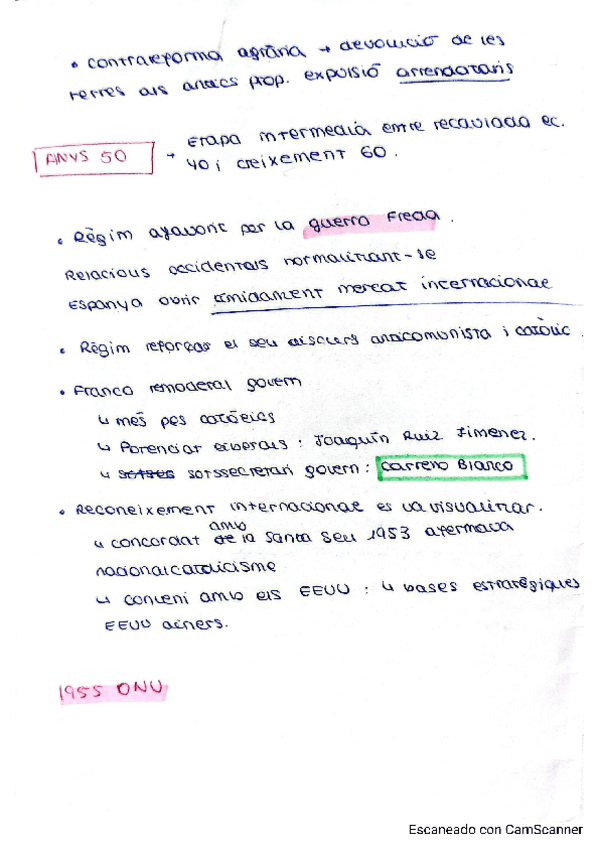 • Contrareforma agrària → devolució de les
terres als antics prop. expulsió arrendataris
ANYS 50
→ Etapa intermedia entre recaviada ec.
40 i creixement 60.
• Règim afavorit per la guerra Freda.
Relacions occidentals normalitzant-se
Espanya obrir tímidament mercat internacional
• Règim reforças el seu discurs anticomunista i catòlic.
• Franco remodelal govern
↳ més pes catòlics
↳ Potenciar liberals: Joaquín Ruiz Jimenez.
↳ sotssecretari govern: Carrero Blanco
• Reconeixement internacional es va visualitzar.
↳ concordat amb la Santa Seu 1953 afermava
nacionalcatolicisme
↳ Conveni amb els EEUU: 4 bases estratègiques
EEUU diners.
1955 ONU
Escaneado con CamScanner